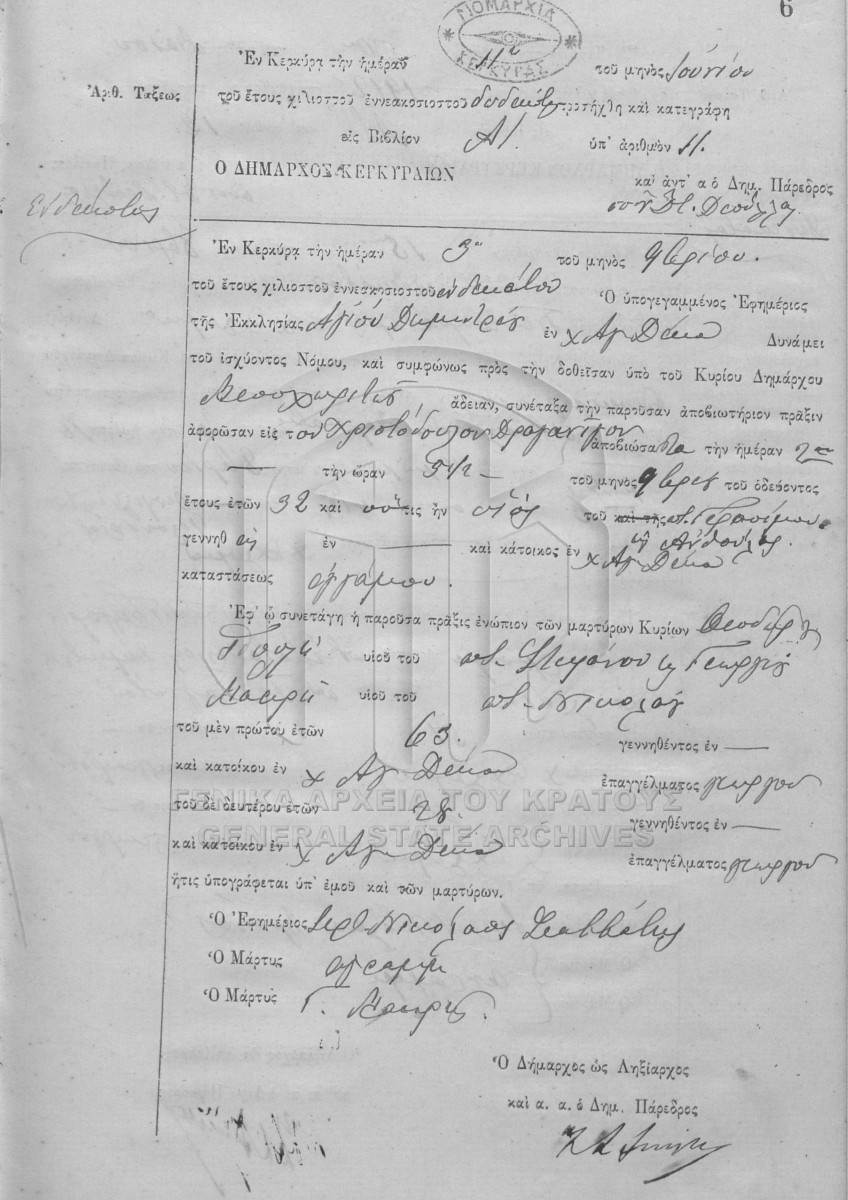 6
ΝΟΜΑΡΧΙΑ
ΚΕΡΚΥΡΑΣ
Ἐν Κερκύρᾳ τὴν ἡμέραν 11 τοῦ μηνὸς Ἰουνίου
Ἀριθ. Τάξεως
τοῦ ἔτους χιλιοστοῦ ἐννεακοσιοστοῦ δωδεκάτου προσήχθη καὶ κατεγράφη
εἰς Βιβλίον Α/. ὑπ' ἀριθμὸν 11.
Ὁ ΔΗΜΑΡΧΟΣ ΚΕΡΚΥΡΑΙΩΝ
καὶ ἀντ' α ὁ Δημ. Πάρεδρος
Ἑνδέκατος
Ἐν Κερκύρᾳ τὴν ἡμέραν 3η τοῦ μηνὸς 9βρίου.
τοῦ ἔτους χιλιοστοῦ ἐννεακοσιοστοῦ ἑνδεκάτου Ὁ ὑπογεγαμμένος Ἐφημέριος
τῆς Ἐκκλησίας Ἁγίου Δημητρίου ἐν χ Ἁγ. Δέκα Δυνάμει
τοῦ ἰσχύοντος Νόμου, καὶ συμφώνως πρὸς τὴν δοθεῖσαν ὑπὸ τοῦ Κυρίου Δημάρχου
ἄδειαν, συνέταξα τὴν παροῦσαν ἀποβιωτήριον πρᾶξιν
ἀφορῶσαν εἰς τὸν Χριστόδουλον Δραγανίγον ἀποβιώσαντα τὴν ἡμέραν 2αν
— τὴν ὥραν 5 1/2 — τοῦ μηνὸς 9βρίου τοῦ ὁδεύοντος
ἔτους ἐτῶν 32 καὶ οὕτις ἦν υἱὸς τοῦ καὶ τῆς π. Γερασίμου
γεννηθεὶς ἐν — καὶ κάτοικος ἐν χ Ἁγ. Δέκα
καταστάσεως ἀγάμου.
Ἐφ' ᾧ συνετάγη ἡ παροῦσα πρᾶξις ἐνώπιον τῶν μαρτύρων Κυρίων Θεοδώρου
υἱοῦ τοῦ ποτ. Στεφάνου καὶ Γεωργίου
Μακρῆ υἱοῦ τοῦ ποτ. Νικολάου
τοῦ μὲν πρώτου ἐτῶν 63. γεννηθέντος ἐν —
καὶ κατοίκου ἐν χ Ἁγ. Δέκα ἐπαγγέλματος γεωργοῦ
ΓΕΝΙΚΑ ΑΡΧΕΙΑ ΤΟΥ ΚΡΑΤΟΥΣ
τοῦ δὲ δευτέρου ἐτῶν 28. γεννηθέντος ἐν —
GENERAL STATE ARCHIVES
καὶ κατοίκου ἐν χ Ἁγ. Δέκα ἐπαγγέλματος γεωργοῦ
ἥτις ὑπογράφεται ὑπ' ἐμοῦ καὶ τῶν μαρτύρων.
Ὁ Ἐφημέριος Ἱερ. Νικόλαος Σαββάτης
Ὁ Μάρτυς
Ὁ Μάρτυς Γ. Μακρῆς.
Ὁ Δήμαρχος ὡς Ληξίαρχος
καὶ α. α. ὁ Δημ. Πάρεδρος